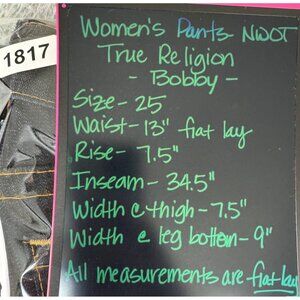 1817
Women's Pants NWOT
True Religion
- Bobby -
Size - 25
Waist - 13" flat lay
Rise - 7.5"
Inseam - 34.5"
Width @ thigh - 7.5"
Width @ leg bottom - 9"
All measurements are flat lay